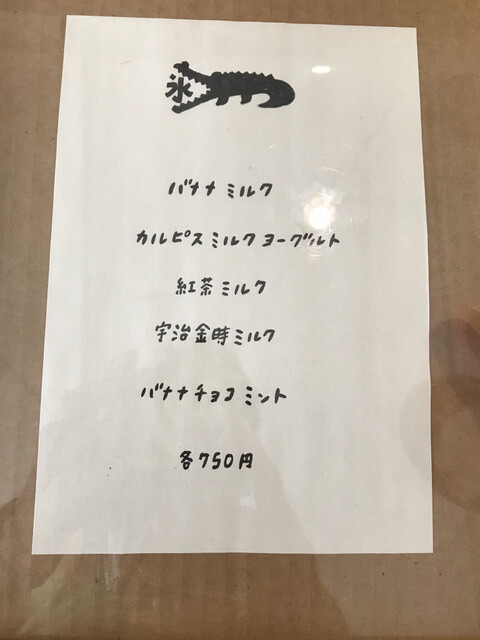 氷
バナナミルク
カルピスミルクヨーグルト
紅茶ミルク
宇治金時ミルク
バナナチョコミント
各750円